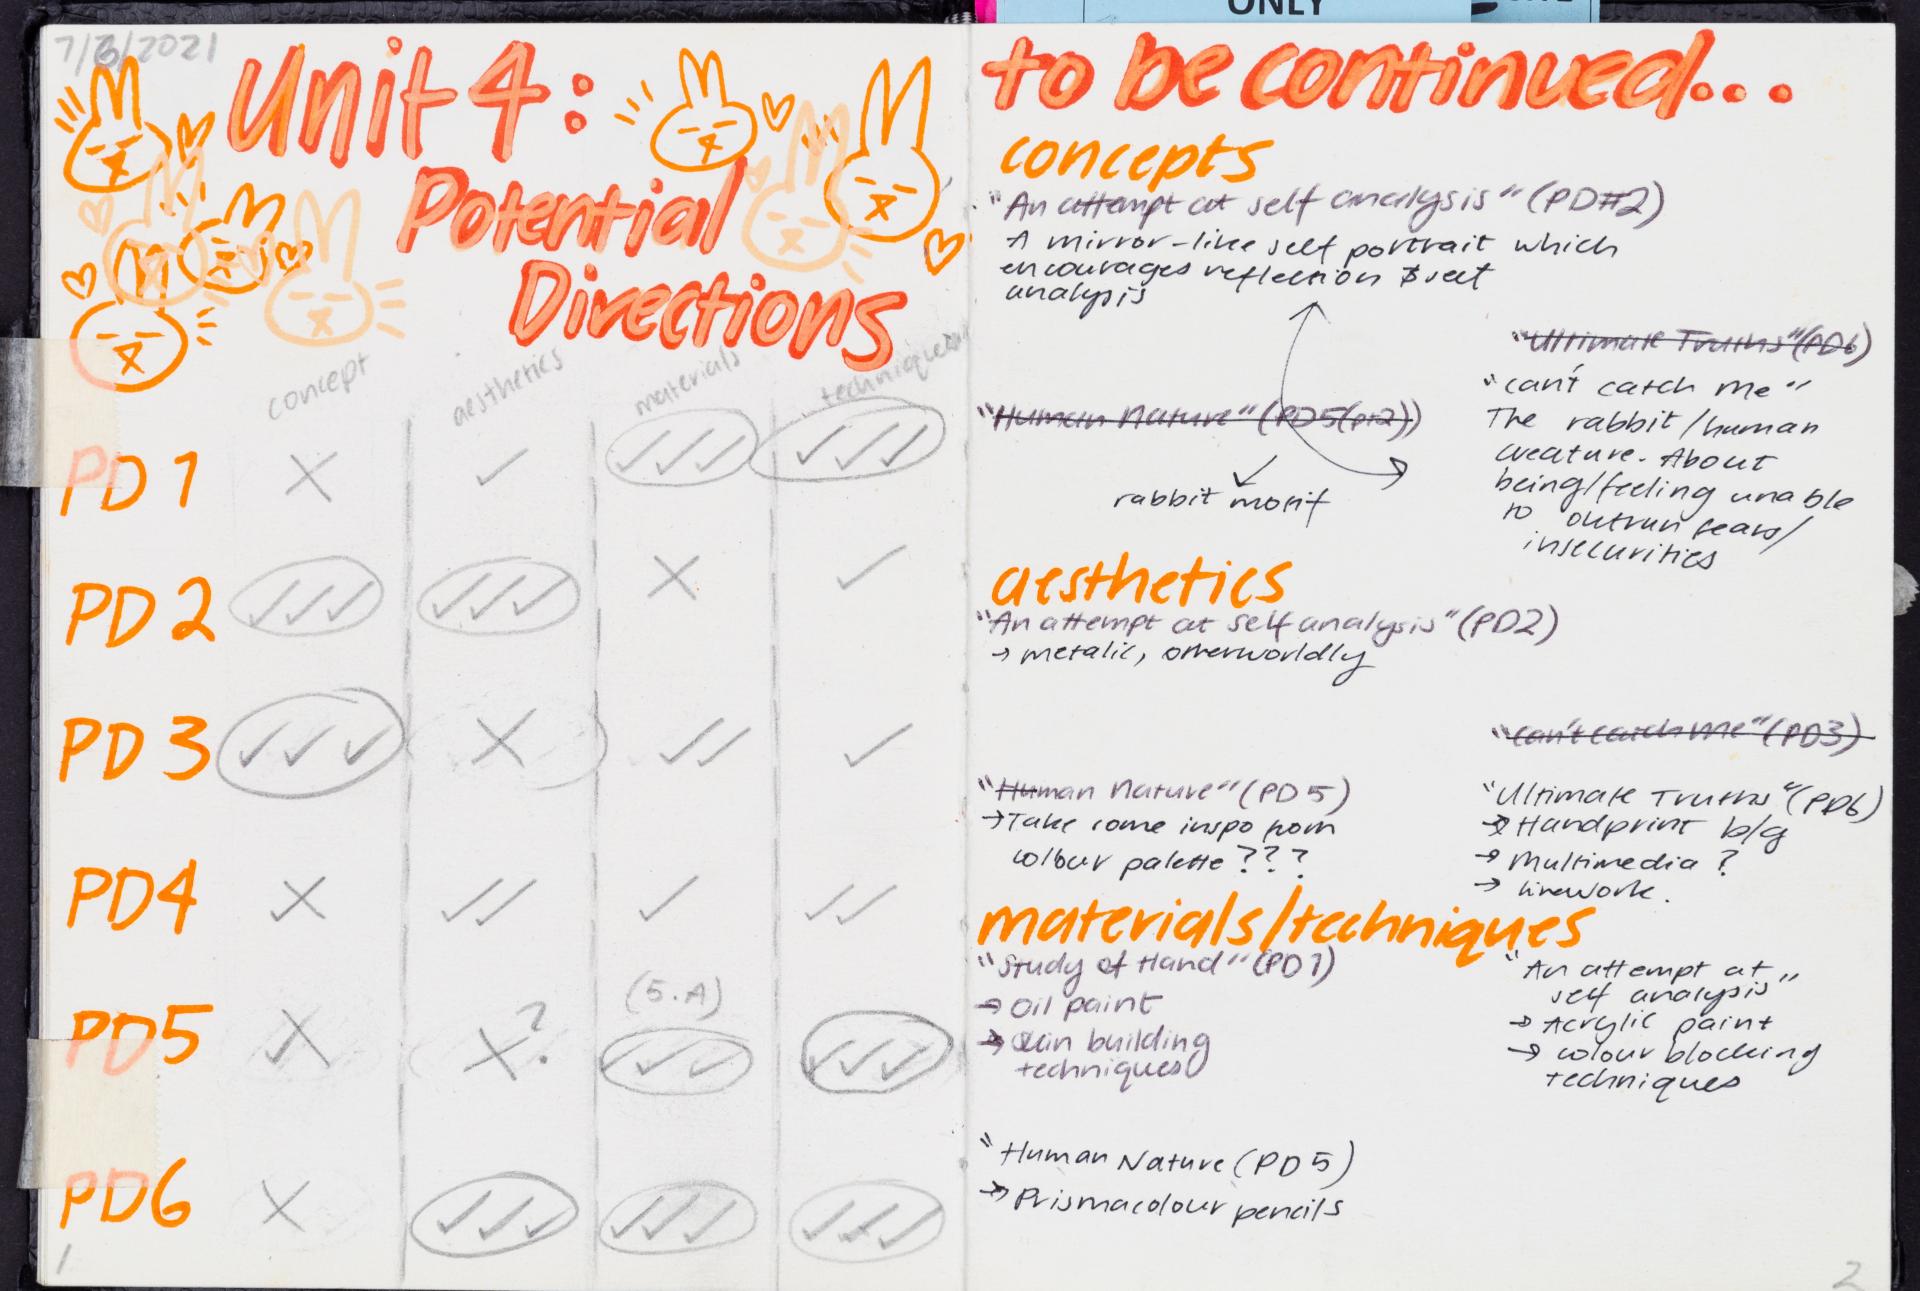 ONLY
7/6/2021
Unit 4:
Potential
Directions
concept
aesthetics
materials
techniques
PD 1
PD 2
PD 3
PD4
(5.A)
PD5
?
PD6
1
to be continued...
concepts
"An attempt at self analysis" (PD#2)
A mirror-like self portrait which
encourages reflection & self
analysis
"Ultimate Truths" (PD6)
"can't catch me"
The rabbit/human
creature. About
being/feeling unable
to outrun fears/
insecurities
"Human Nature" (PD5(pt2))
rabbit motif
aesthetics
"An attempt at self analysis" (PD2)
→ metalic, otherworldly
"can't catch me" (PD3)
"Human Nature" (PD 5)
→ Take some inspo from
colour palette ???
"Ultimate Truths" (PD6)
→ Handprint b/g
→ Multimedia ?
→ linework.
materials/techniques
"Study of Hand" (PD1)
→ Oil paint
→ Skin building
techniques
"An attempt at
self analysis"
→ Acrylic paint
→ colour blocking
techniques
"Human Nature (PD 5)
→ Prismacolour pencils
2